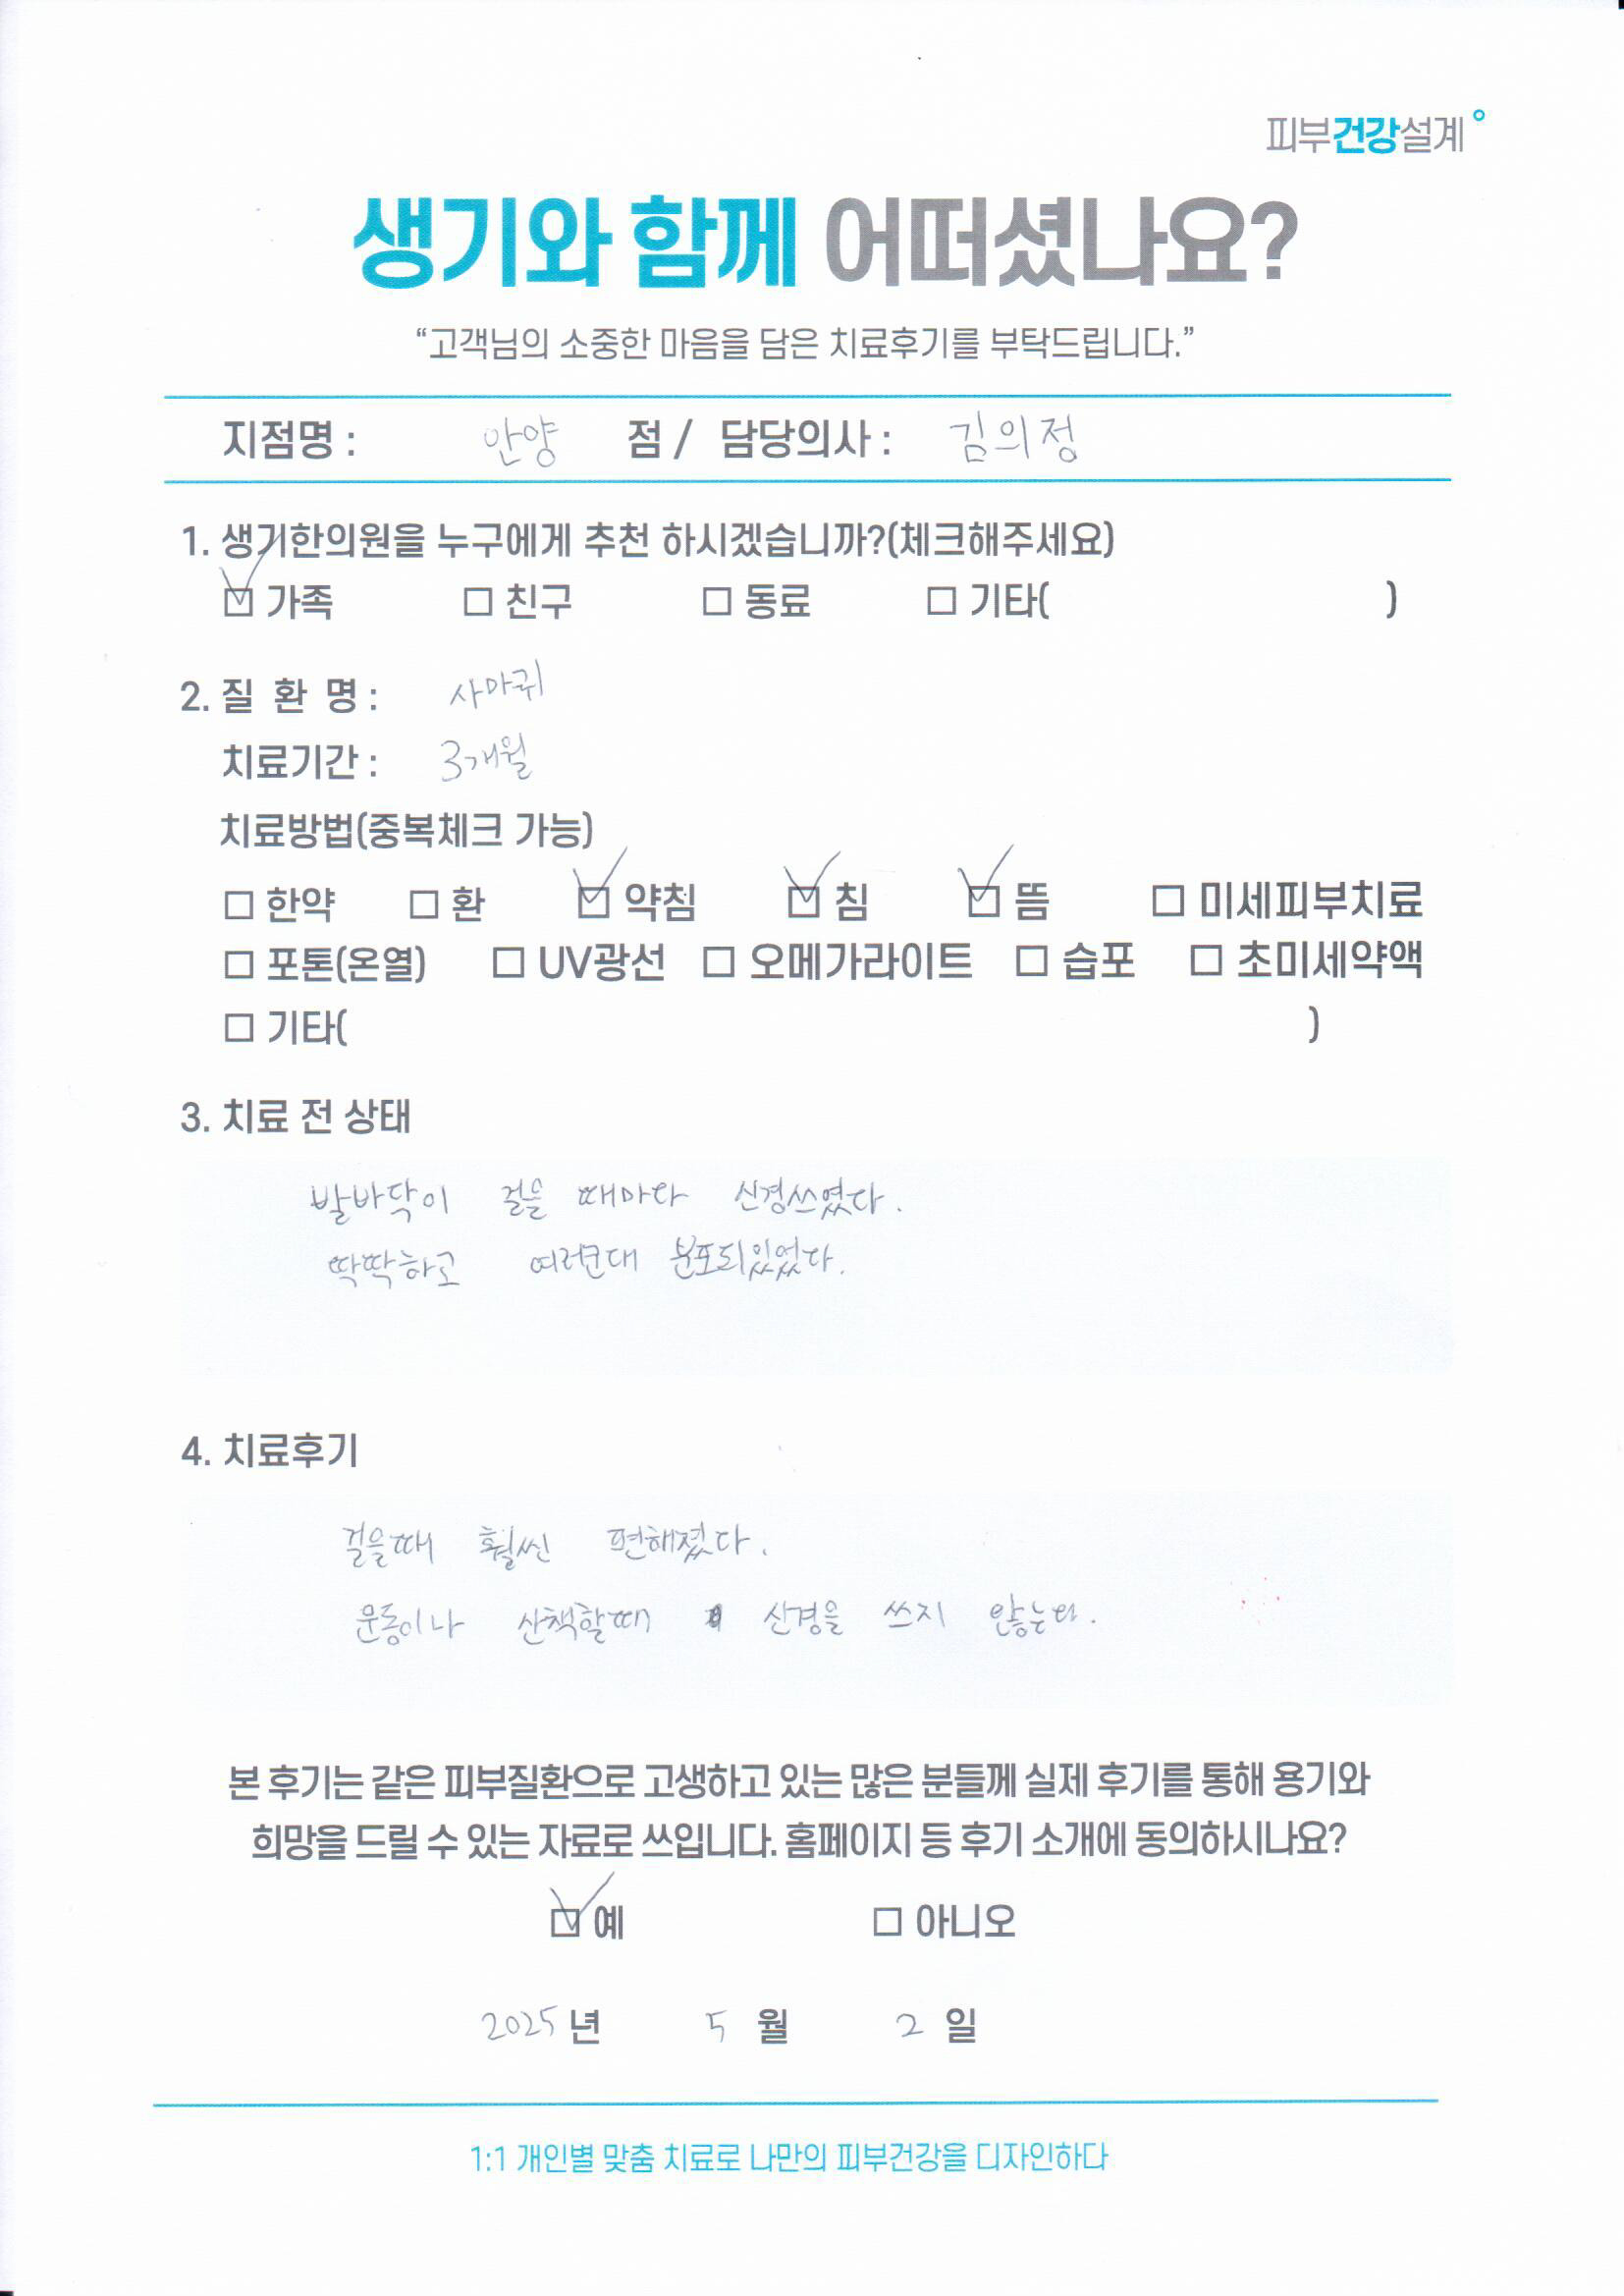 피부건강설계
생기와 함께 어떠셨나요?
“고객님의 소중한 마음을 담은 치료후기를 부탁드립니다.”
지점명 : 안양 점 / 담당의사 : 김의정
1. 생기한의원을 누구에게 추천 하시겠습니까?(체크해주세요)
☑ 가족 □ 친구 □ 동료 □ 기타( )
2. 질 환 명 : 사마귀
치료기간 : 3개월
치료방법(중복체크 가능)
□ 한약 □ 환 ☑ 약침 ☑ 침 ☑ 뜸 □ 미세피부치료
□ 포톤(온열) □ UV광선 □ 오메가라이트 □ 습포 □ 초미세약액
□ 기타( )
3. 치료 전 상태
발바닥이 걸을 때마다 신경쓰였다.
딱딱하고 여러군대 분포되있었다.
4. 치료후기
걸을때 훨씬 편해졌다.
운동이나 산책할때 신경을 쓰지 않는다.
본 후기는 같은 피부질환으로 고생하고 있는 많은 분들께 실제 후기를 통해 용기와
희망을 드릴 수 있는 자료로 쓰입니다. 홈페이지 등 후기 소개에 동의하시나요?
☑ 예 □ 아니오
2025 년 5 월 2 일
1:1 개인별 맞춤 치료로 나만의 피부건강을 디자인하다